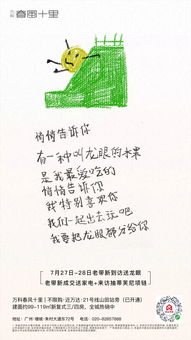 春風十里
悄悄告诉你
有一种叫龙眼的水果
是我最爱吃的
悄悄告诉你
我特别喜欢你
我们一起出去玩吧
我要把龙眼都分给你
7月27日-28日老带新到访送龙眼
老带新成交送家电+来访抽蒂芙尼项链
万科春风十里 | 不限购·近万达·21号线山田站旁（已开通）
建面约99-119㎡新装三/四房，全城热销中
地址：广州·增城·朱村大道东72号 电话：020-82857888